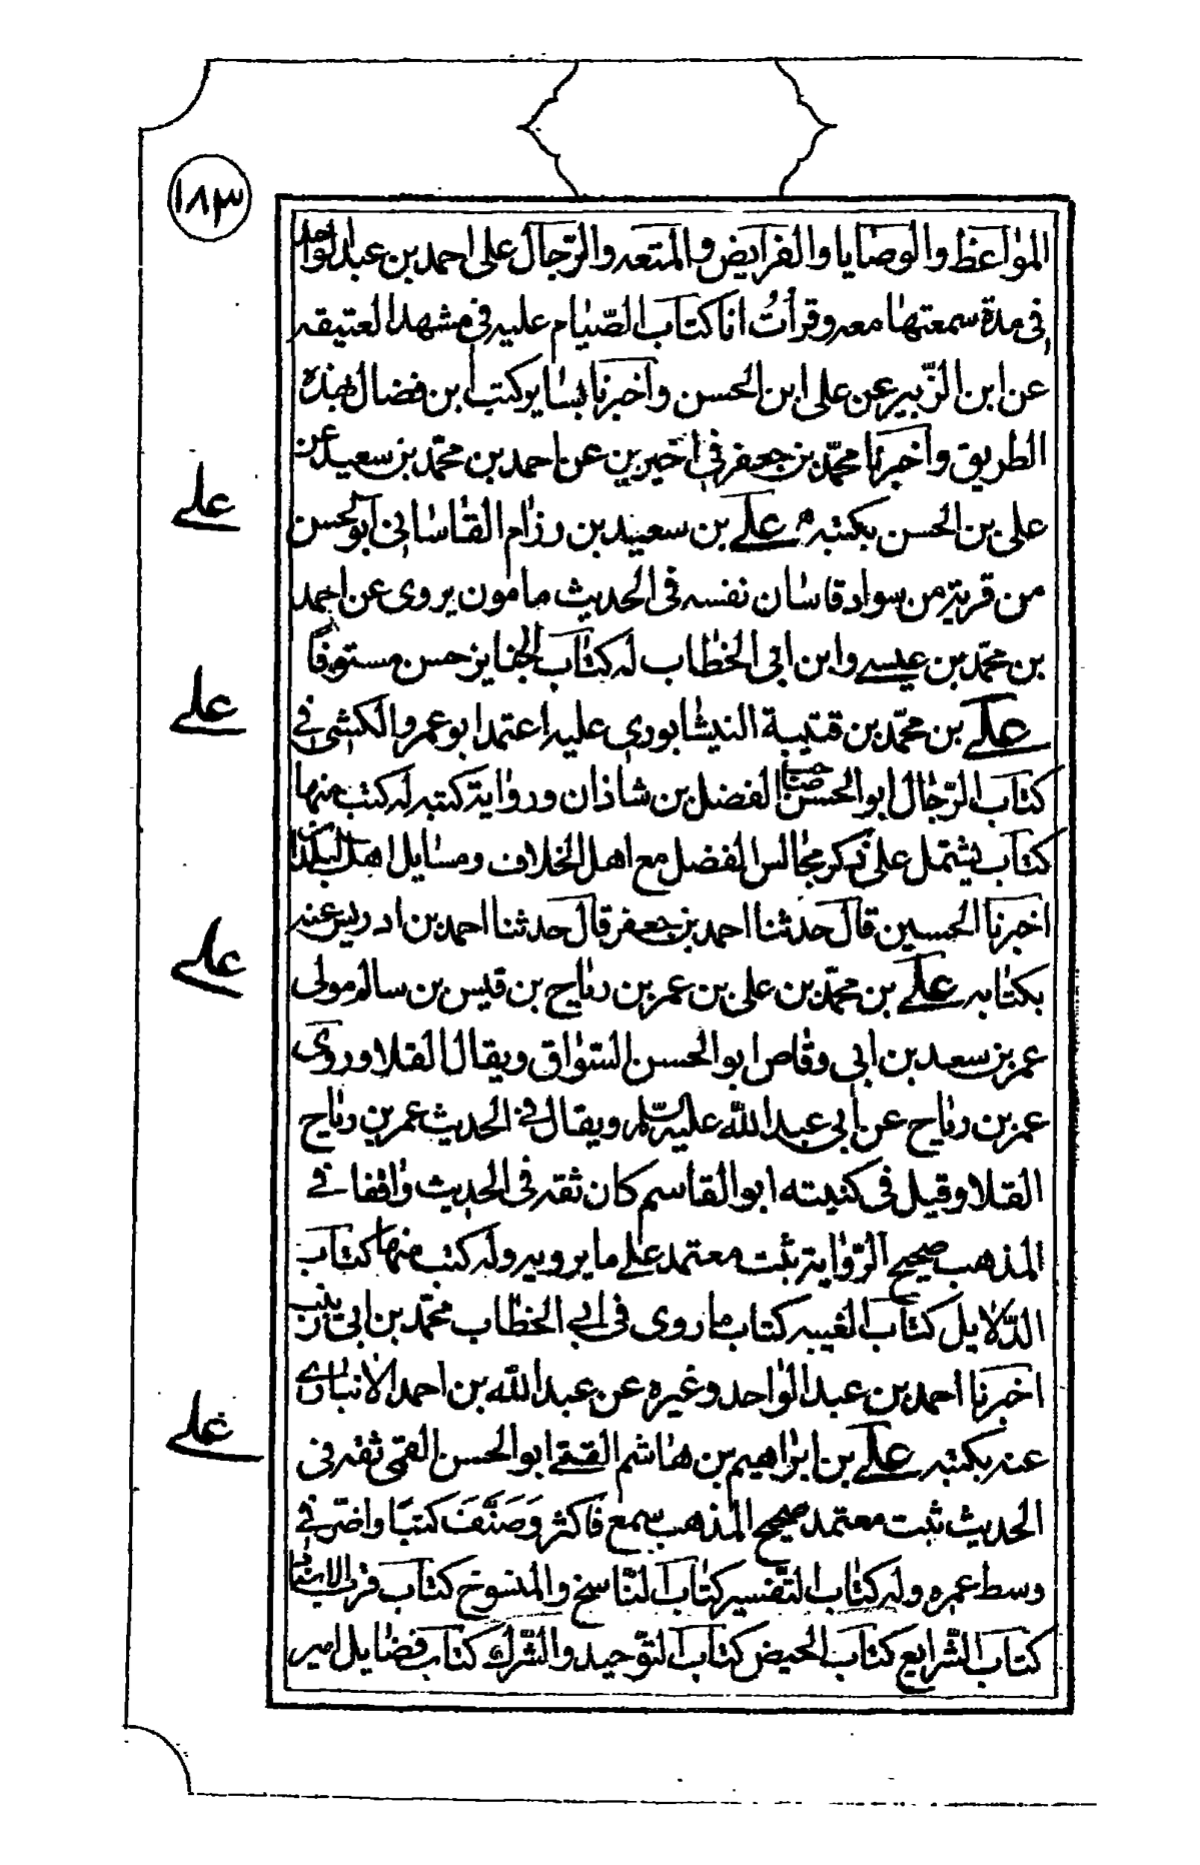 ١٨٣
المواعظ والوصايا والفرايض والمتعه والرّجال على احمد بن عبد الواحد
فى مدة سمعتها معه وقرأتُ انا كتاب الصّيام عليه فى مشهد العتيقه
عن ابن الزّبير عن على ابن الحسن واخبرنا بسايو كتب ابن فضال بهذه
الطريق واخبرنا محمّد بن جعفر فى اخيرين عن احمد بن محمّد بن سعيد عن
على
على بن الحسن بكتبه م على بن سعيد بن رزام القاسانى ابو الحسن
من قرية من سواد قاسان نفسه فى الحديث مامون يروى عن احمد
بن محمّد بن عيسى وابن ابى الخطاب له كتاب الجنايز حسن مستوفا
على
على بن محمّد بن قتيبة النيشابورى عليه اعتمد ابو عمرو الكشى فى
كتاب الرّجال ابو الحسن صاحب الفضل بن شاذان ورواية كتبه له كتب منها
كتاب يشتمل على ذكر مجالس الفضل مع اهل الخلاف ومسايل اهل البلدان
اخبرنا الحسين قال حدثنا احمد بن جعفر قال حدثنا احمد بن ادريس عنه
على
بكتابه على بن محمّد بن على بن عمر بن رياح بن قيس بن سالم مولى
عمر بن سعد بن ابى وقاص ابو الحسن السّواق ويقال القلا وروى
عمر بن رياح عن ابى عبد الله عليه السّلم ويقال فى الحديث عمر بن رياح
القلا وقيل فى كنيته ابو القاسم كان ثقه فى الحديث واقفا فى
المذهب صحيح الرّواية ثبت معتمد على ما يرويه وله كتب منها كتاب
الدّلايل كتاب الغيبه كتاب ما روى فى ابى الخطاب محمّد بن ابى زينب
اخبرنا احمد بن عبد الواحد وغيره عن عبد الله بن احمد الانبارى
على
عنه بكتبه على بن ابراهيم بن هاشم القمى ابو الحسن القمى ثقه فى
الحديث ثبت معتمد صحيح المذهب سمع فاكثر وَصَنَّفَ كتبًا واضر فى
وسط عمره وله كتاب التّفسير كتاب النّاسخ والمنسوخ كتاب قرب الاسناد
كتاب الشّرايع كتاب الحيض كتاب التّوحيد والشّرك كتاب فضايل امير